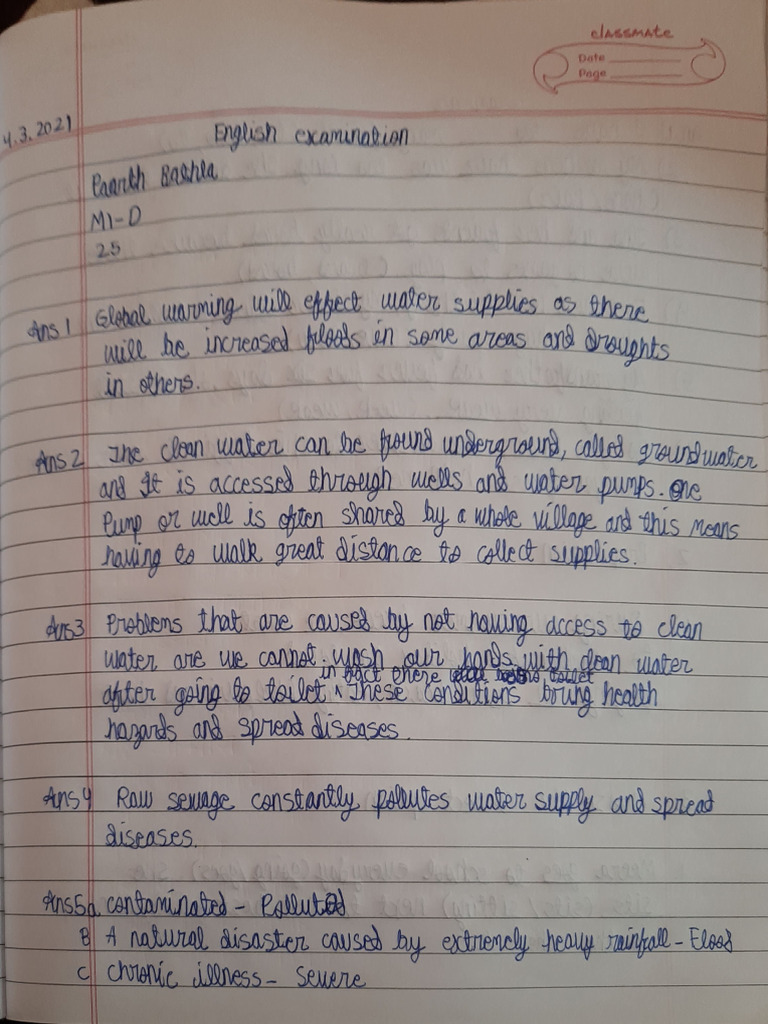 classmate
Date
Page
4.3.2021
English examination
Paarth Bathla
M1-D
25
Ans 1 Global warming will effect water supplies as there
will be increased floods in some areas and droughts
in others.
Ans 2 The clean water can be found underground, called groundwater
and It is accessed through wells and water pumps. One
Pump or well is often shared by a whole village and this means
having to walk great distance to collect supplies.
Ans3 Problems that are caused by not having access to clean
water are we cannot. wash our hands with clean water
in fact there toilet
after going to toilet ^ These conditions bring health
hazards and spread diseases.
Ans4 Raw sewage constantly pollutes water supply and spread
diseases.
Ans5a contaminated - Polluted
B A natural disaster caused by extremely heavy rainfall - Flood
C chronic illness - Severe